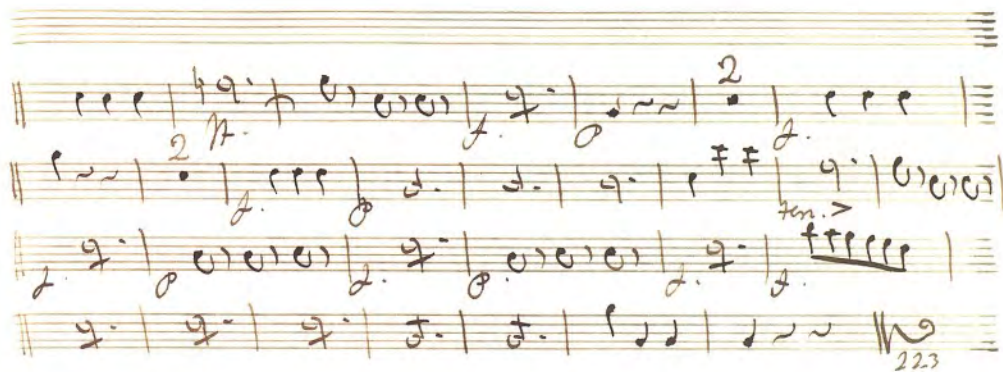 2
ff. f. p f.
2
f. p ten. >
f. p f. p. f. f.
223